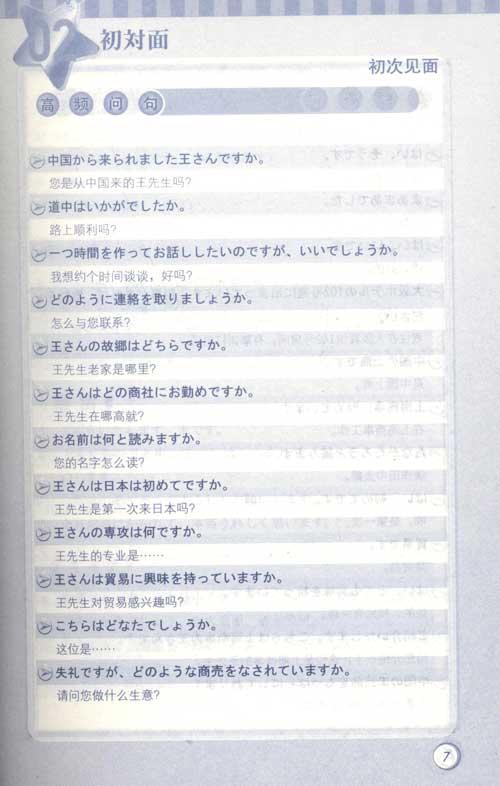 02 初対面
初次见面
高频问句
中国から来られました王さんですか。
您是从中国来的王先生吗?
道中はいかがでしたか。
路上顺利吗?
一つ時間を作ってお話ししたいのですが、いいでしょうか。
我想约个时间谈谈，好吗?
どのように連絡を取りましょうか。
怎么与您联系?
王さんの故郷はどちらですか。
王先生老家是哪里?
王さんはどの商社にお勤めですか。
王先生在哪高就?
お名前は何と読みますか。
您的名字怎么读?
王さんは日本は初めてですか。
王先生是第一次来日本吗?
王さんの専攻は何ですか。
王先生的专业是……
王さんは貿易に興味を持っていますか。
王先生对贸易感兴趣吗?
こちらはどなたでしょうか。
这位是……
失礼ですが、どのような商売をなされていますか。
请问您做什么生意?
7